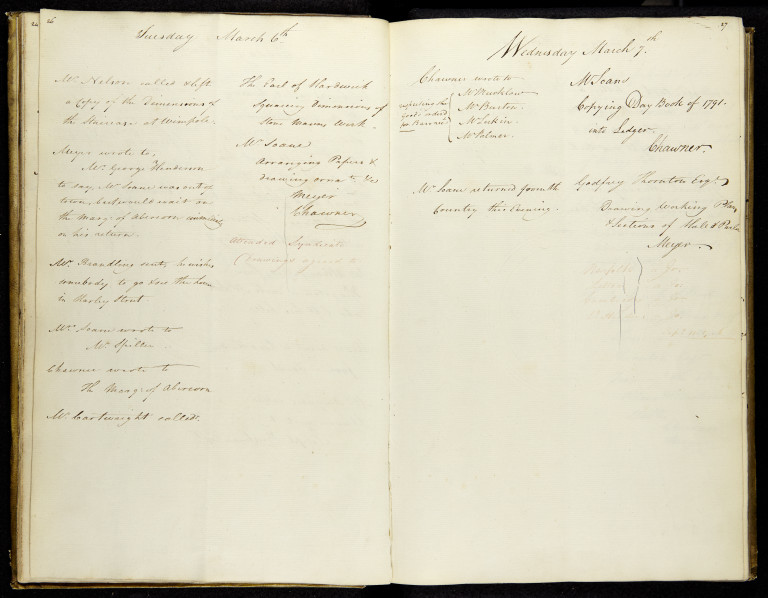 26
Tuesday March 6th
Mr. Nelson called & left
a Copy of the Dimensions of
the Staircase at Wimpole.
Meyer wrote to,
Mr. George Henderson
to say, Mr. Soane was out of
town, but would wait on
the Marq: of Abercorn immediately
on his return.
Mr. Brandling sent, he wishes
somebody to go & see the house
in Harley Street
Mr. Soane wrote to
Mr. Spiller
Chawner wrote to
The Marq: of Abercorn
Mr. Cartwright called.
The Earl of Hardwick
Squaring dimensions of
Stone Masons Work.
Mr. Soane
Arranging Papers &
drawing
Meyer
Chawner
attended
27
Wednesday March 7.th
Chawner wrote to
Mr
Mr. Burton
Mr. Lukin
Mr. Palmer.
respecting the
goods
for
Mr. Soane returned from the
Country this Evening.
Mr Soane
Copying Day Book of 1791.
into Ledger.
Chawner.
Godfrey Thornton Esqr.
Drawing Working Plans
& Sections of Hall &
Meyer